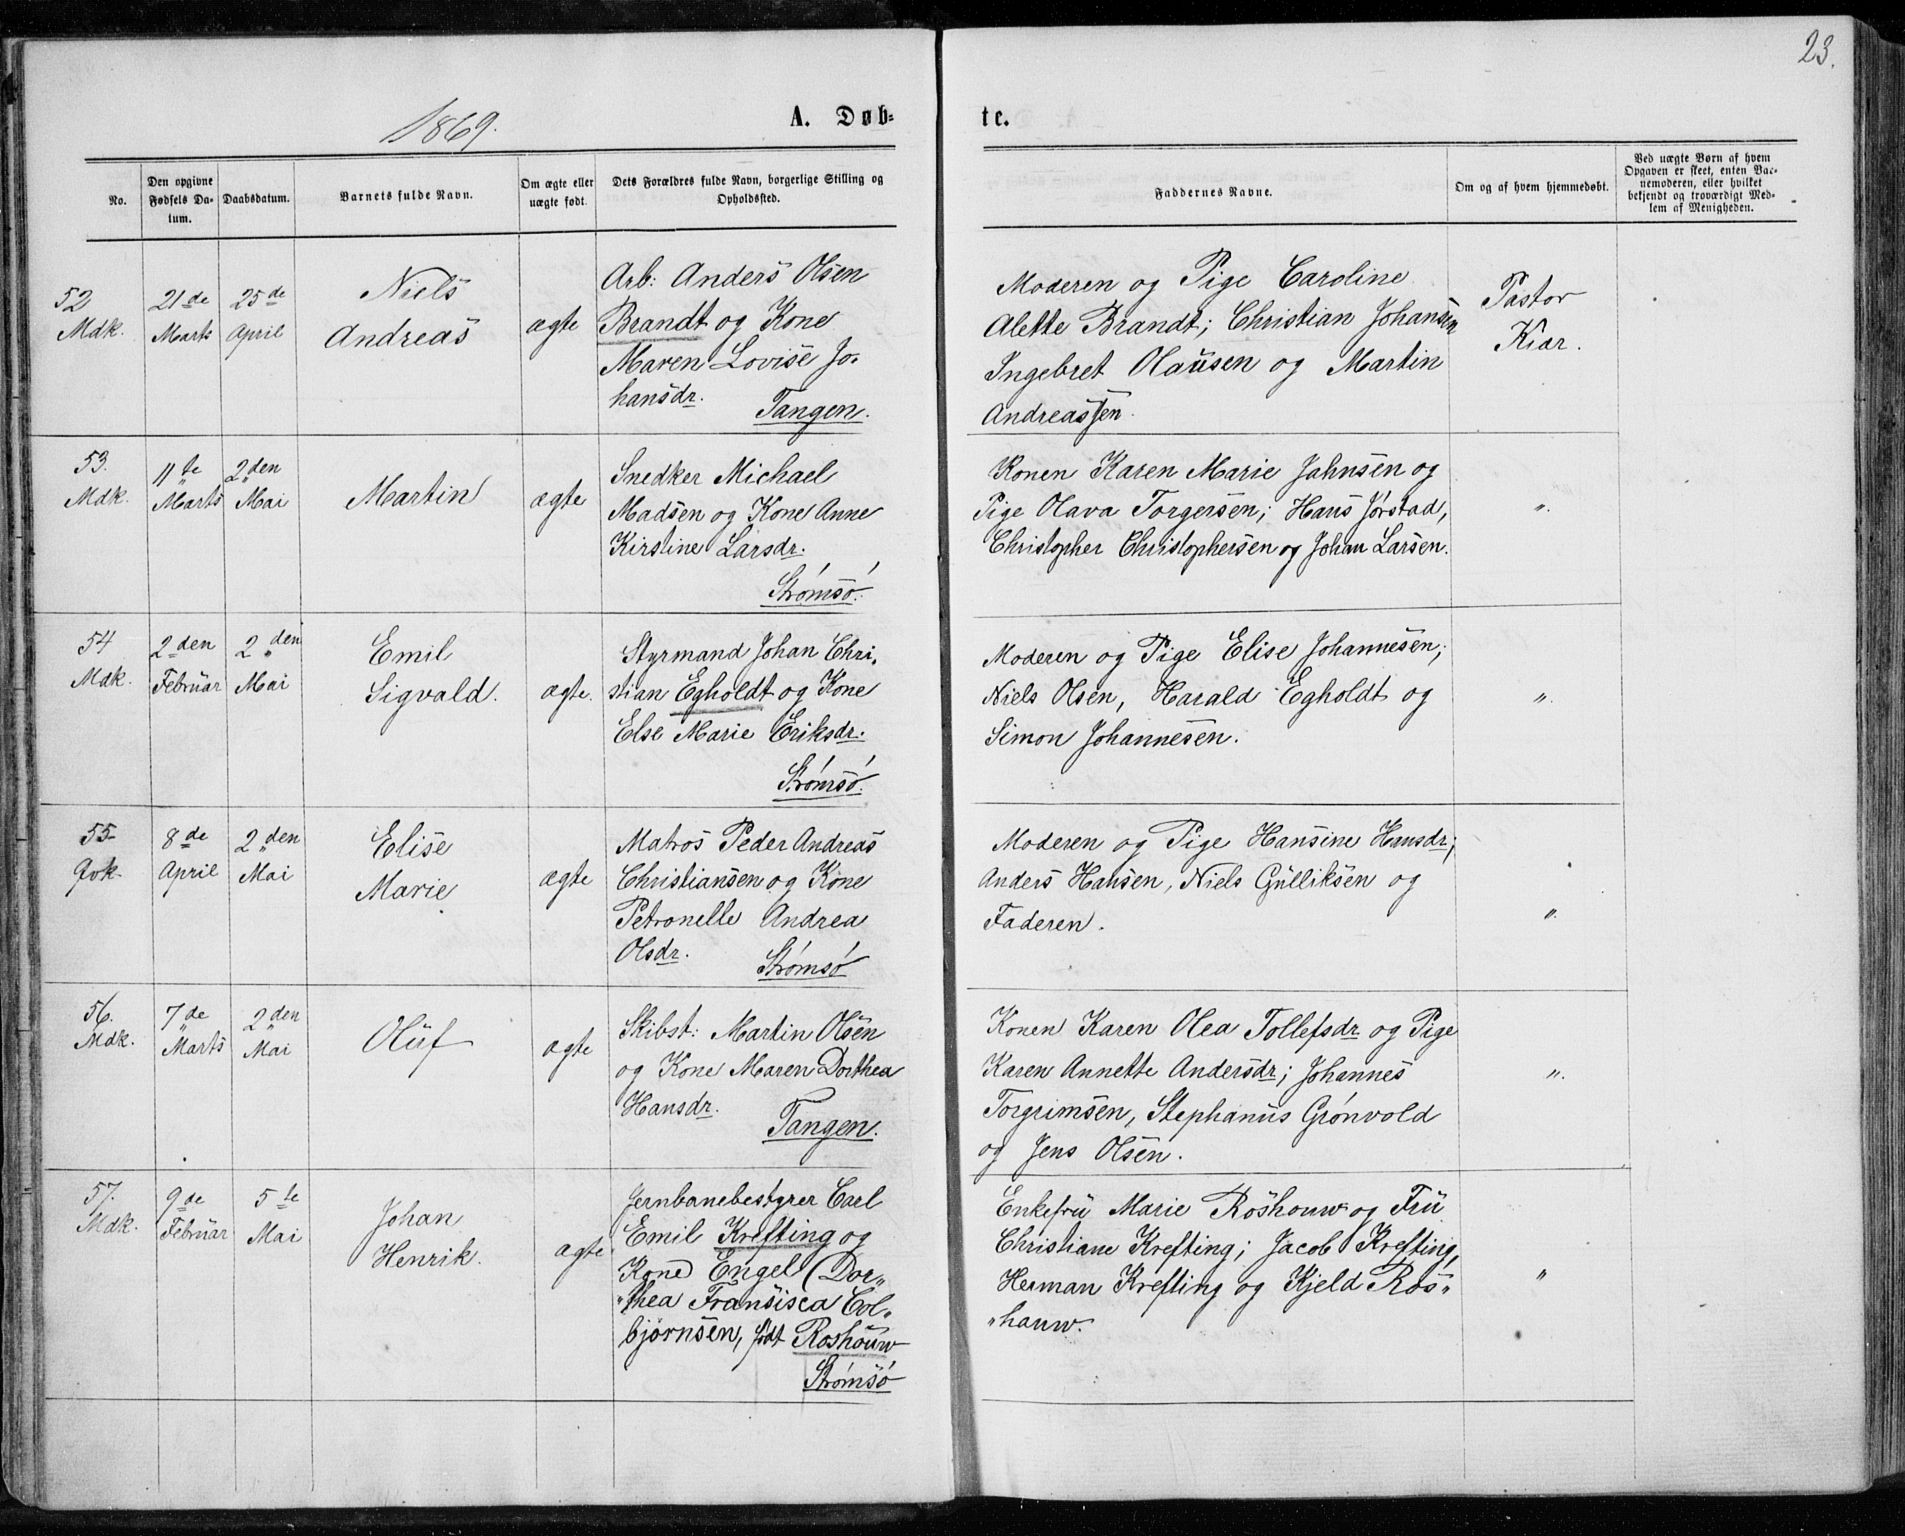 23.
1869.
A. Døb-
te.
No.
Den opgivne
Fødsels Da-
tum.
Daabsdatum.
Barnets fulde Navn.
Om ægte eller
uægte født.
Dets Forældres fulde Navn, borgerlige Stilling og
Opholdssted.
Faddernes Navne.
Om og af hvem hjemmedøbt.
Ved uægte Børn af hvem
Opgaven er skeet, enten Bar-
nemoderen, eller hvilket
bekjendt og troværdigt Med-
lem af Menigheden.
52
Mdk.
21de
Marts
25de
April
Niels
Andreas
ægte
Arb: Anders Olsen
Brandt og Kone
Maren Lovise Jo-
hansdr.
Tangen.
Moderen og Pige Caroline
Alette Brandt; Christian Johansen
Ingebret Olausen og Martin
Andreassen.
Pastor
Kiær.
53.
Mdk.
11te
Marts
2den
Mai
Martin
ægte
Snedker Michael
Madsen og Kone Anne
Kirstine Larsdr.
Strømsø.
Konen Karen Marie Jahnsen og
Pige Olava Torgersen; Hans Jørstad,
Christopher Christophersen og Johan Larsen.
"
54
Mdk.
2den
Februar
2den
Mai
Emil
Sigvald.
ægte.
Styrmand Johan Chri-
stian Egholdt og Kone
Else Marie Eriksdr.
Strømsø.
Moderen og Pige Elise Johannesen;
Niels Olsen, Harald Egholdt og
Simon Johannesen.
"
55
Qvk.
8de
April
2den
Mai
Elise
Marie
ægte
Matros Peder Andreas
Christiansen og Kone
Petronelle Andrea
Olsdr.
Strømsø
Moderen og Pige Hansine Hansdr;
Anders Hansen, Niels Gulliksen og
Faderen.
"
56.
Mdk.
7de
Marts
2den
Mai
Oluf
ægte
Skibst: Martin Olsen
og Kone Maren Dorthea
Hansdr.
Tangen.
Konen Karen Olea Tollefsdr og Pige
Karen Annette Andersdr; Johannes
Torgrimsen, Stephanus Grønvold
og Jens Olsen.
"
57.
Mdk.
9de
Februar
5te
Mai
Johan
Henrik.
ægte
Jernbanebestyrer Carl
Emil Krefting og
Kone Engel (Dor„
„thea Fransisca Col„
bjørnsen, født Roshouw
Strømsø
Enkefru Marie Roshouw og Fru
Christiane Krefting; Jacob Krefting,
Herman Krefting og Kjeld Ros„
„hauw.
"